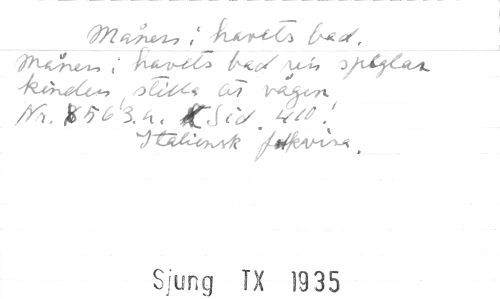 Månen i havets bad.
Månen i havets bad ren speglar
kinden stilla åt vågen
Nr. 563.a. Sid. 410.
Italiensk folkvisa.
Sjung TX 1935